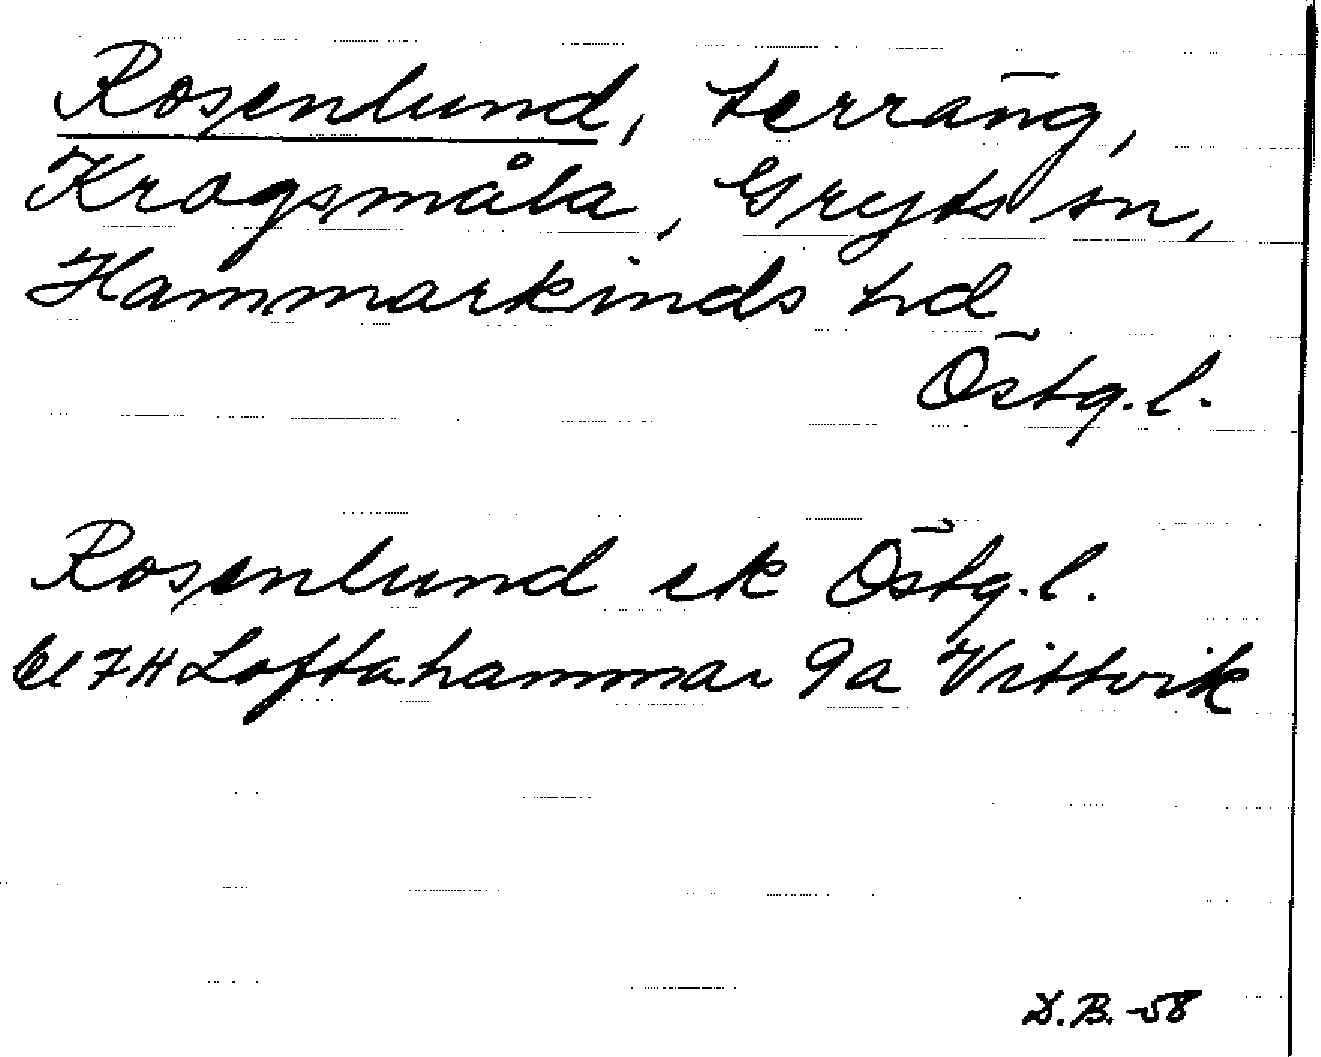 Rosenlund, terräng,
Krogsmåla, Gryts sn,
Hammarkinds hd
Östg.l.
Rosenlund ek Östg.l.
7H Loftahammar 9a Vittvik
D.B.-58